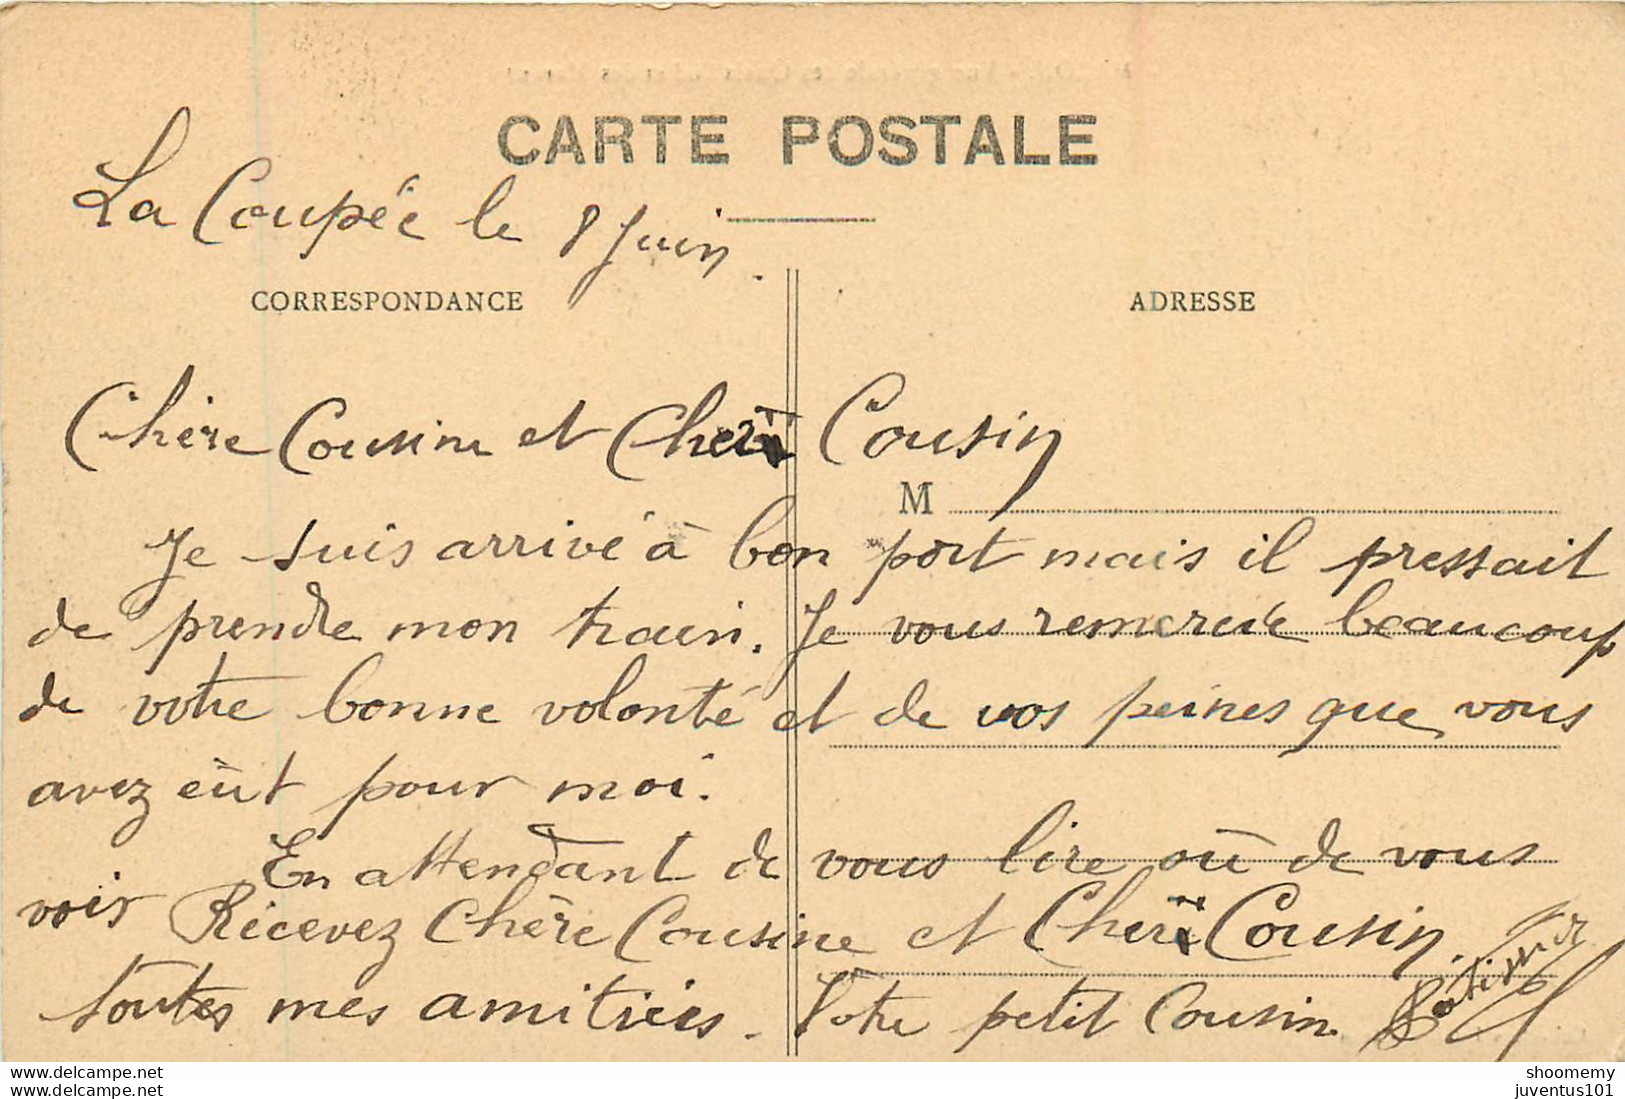 CARTE POSTALE
La Coupée le 8 Juin.
CORRESPONDANCE
ADRESSE
Chère Cousine et Cher Cousin
M
Je suis arrivé à bon port mais il pressait
de prendre mon train. Je vous remercie beaucoup
de votre bonne volonté et de vos peines que vous
avez eût pour moi.
En attendant de vous lire où de vous
voir Recevez Chère Cousine et Cher Cousin.
toutes mes amitiées. Votre petit Cousin
www.delcampe.net
www.delcampe.net
shoomemy
juventus101